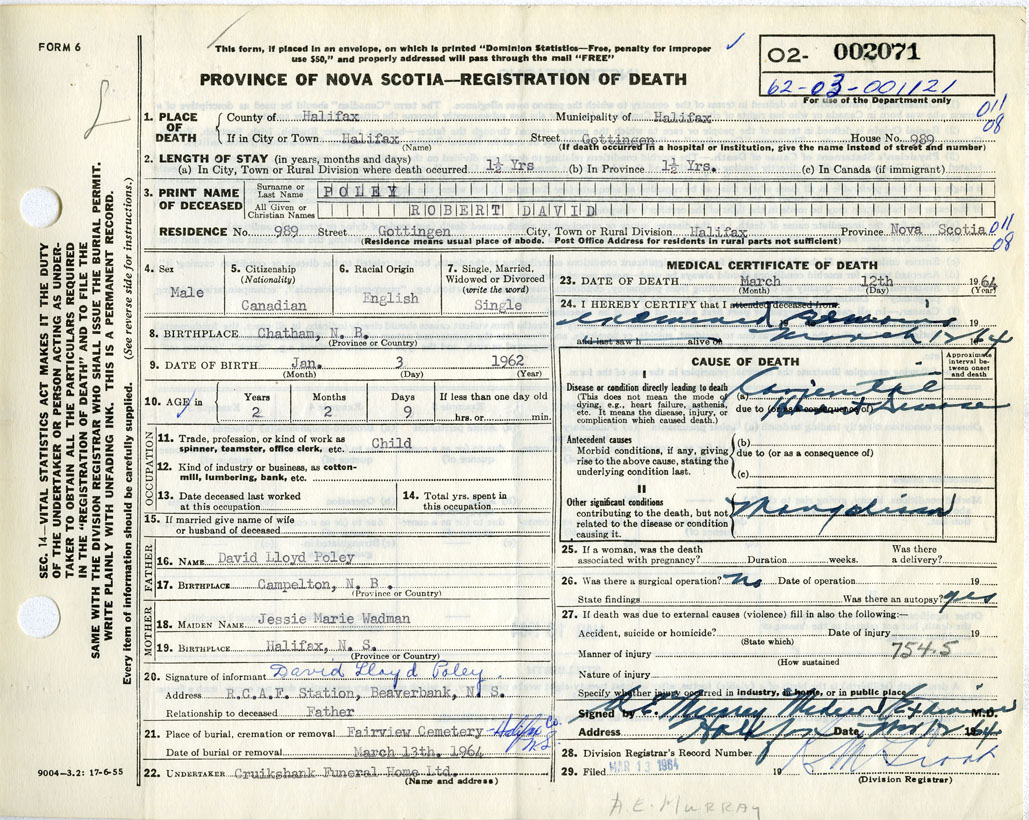 FORM 6
This form, if placed in an envelope, on which is printed "Dominion Statistics—Free, penalty for improper
use $50," and properly addressed will pass through the mail "FREE"
PROVINCE OF NOVA SCOTIA—REGISTRATION OF DEATH
02- 002071
62-03-001121
For use of the Department only
011
08
1. PLACE OF DEATH
County of Halifax Municipality of Halifax
If in City or Town Halifax Street Gottingen House No. 989
(Name) (If death occurred in a hospital or institution, give the name instead of street and number)
2. LENGTH OF STAY (in years, months and days)
(a) In City, Town or Rural Division where death occurred 1½ Yrs (b) In Province 1½ Yrs. (c) In Canada (if immigrant)
3. PRINT NAME OF DECEASED
Surname or Last Name POLEY
All Given or Christian Names ROBERT DAVID
RESIDENCE No. 989 Street Gottingen City, Town or Rural Division Halifax Province Nova Scotia
011
08
(Residence means usual place of abode. Post Office Address for residents in rural parts not sufficient)
4. Sex
Male
5. Citizenship
(Nationality)
Canadian
6. Racial Origin
English
7. Single, Married,
Widowed or Divorced
(write the word)
Single
8. BIRTHPLACE Chatham, N. B.
(Province or Country)
9. DATE OF BIRTH Jan. 3 1962
(Month) (Day) (Year)
10. AGE in
Years Months Days If less than one day old
2 2 9 hrs. or min.
OCCUPATION
11. Trade, profession, or kind of work as
spinner, teamster, office clerk, etc. Child
12. Kind of industry or business, as cotton-
mill, lumbering, bank, etc.
13. Date deceased last worked
at this occupation
14. Total yrs. spent in
this occupation
15. If married give name of wife
or husband of deceased
FATHER
16. NAME David Lloyd Poley
17. BIRTHPLACE Campelton, N. B.
(Province or Country)
MOTHER
18. MAIDEN NAME Jessie Marie Wadman
19. BIRTHPLACE Halifax, N. S.
(Province or Country)
20. Signature of informant David Lloyd Poley
Address R.C.A.F. Station, Beaverbank, N. S.
Relationship to deceased Father
21. Place of burial, cremation or removal Fairview Cemetery Halifax Co. N.S.
Date of burial or removal March 13th. 1964
22. UNDERTAKER Cruikshank Funeral Home Ltd.
(Name and address)
MEDICAL CERTIFICATE OF DEATH
23. DATE OF DEATH March 12th 1964
(Month) (Day) (Year)
24. I HEREBY CERTIFY that I attended deceased from
examined 19
and last saw h alive on March 12/64
CAUSE OF DEATH
Approximate
interval be-
tween onset
and death
I
Disease or condition directly leading to death
(This does not mean the mode of
dying, e.g., heart failure, asthenia,
etc. It means the disease, injury, or
complication which caused death.)
(a) Congenital
due to (or as consequence of)
Heart Disease
Antecedent causes
Morbid conditions, if any, giving
rise to the above cause, stating the
underlying condition last.
(b)
due to (or as a consequence of)
(c)
II
Other significant conditions
contributing to the death, but not
related to the disease or condition
causing it.
Mongolism
25. If a woman, was the death
associated with pregnancy? Duration weeks. Was there
a delivery?
26. Was there a surgical operation? no Date of operation 19
State findings Was there an autopsy? yes
27. If death was due to external causes (violence) fill in also the following:—
Accident, suicide or homicide? Date of injury 19
(State which)
Manner of injury 754.5
(How sustained
Nature of injury
Specify whether injury occurred in industry, in home, or in public place
Signed by A.E. Murray Medical Examiner M.D.
Address Halifax Date 1964
28. Division Registrar's Record Number
29. Filed MAR 13 1964 19
(Division Registrar)
A.E. MURRAY
SEC. 14—VITAL STATISTICS ACT MAKES IT THE DUTY
OF THE UNDERTAKER OR PERSON ACTING UNDER-
TAKER TO OBTAIN ALL THE PARTICULARS REQUIRED
IN THE "REGISTRATION OF DEATH" AND TO FILE THE
SAME WITH THE DIVISION REGISTRAR WHO SHALL ISSUE THE BURIAL PERMIT.
WRITE PLAINLY WITH UNFADING INK. THIS IS A PERMANENT RECORD.
Every item of information should be carefully supplied. (See reverse side for instructions.)
9004—3.2: 17-6-55